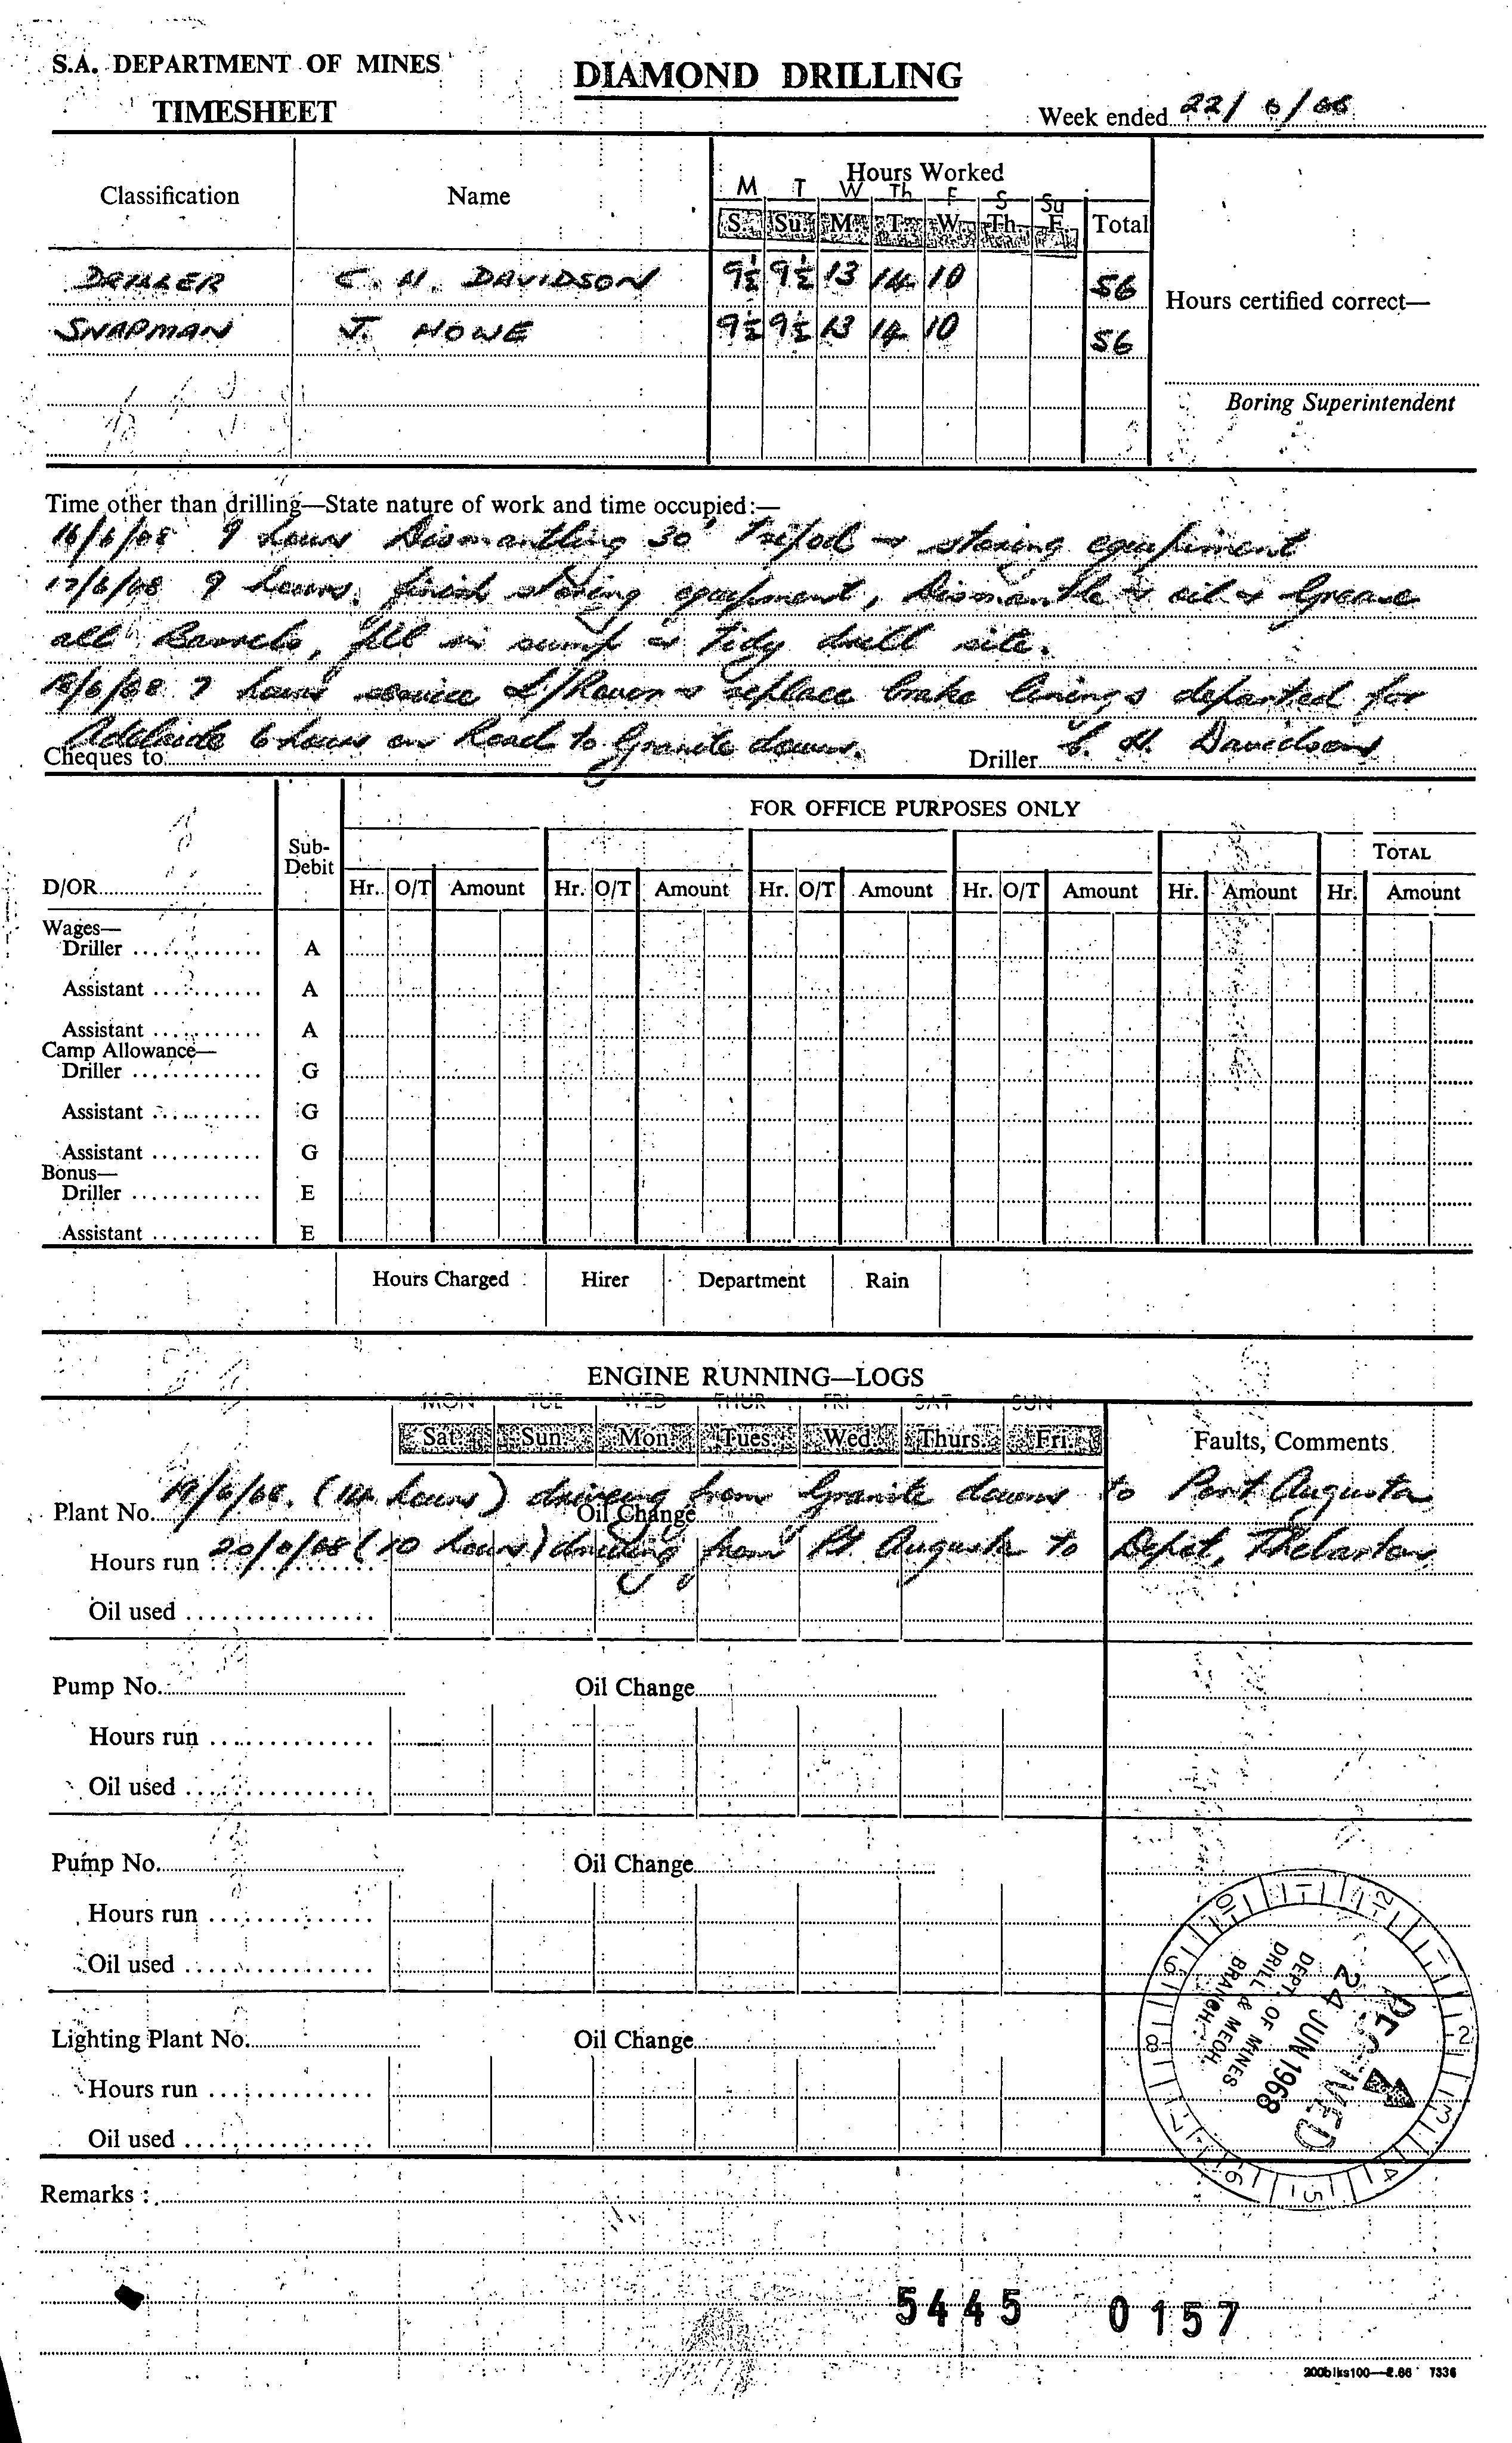 S.A. DEPARTMENT OF MINES
DIAMOND DRILLING
TIMESHEET
Week ended 22/6/68
Classification Name Hours Worked
M T W Th F S Su
S. Su. M. T. W. Th. F. Total
DRILLER C. H. DAVIDSON 9½ 9½ 13 14 10 56
Hours certified correct—
SNAPMAN J. HOWE 9½ 9½ 13 14 10 56
Boring Superintendent
Time other than drilling—State nature of work and time occupied:—
16/6/68 9 hours Dismantling 30' Tripod & storing equipment
17/6/68 9 hours. finish storing equipment, Dismantle & oil & Grease
all Barrels, fill in sump & Tidy drill site.
18/6/68 7 hours service L/Rover & replace brake linings departed for
Adelaide 6 hours on Road to Granite downs.
Cheques to Driller C. H. Davidson
FOR OFFICE PURPOSES ONLY
D/OR Sub-Debit TOTAL
Hr. O/T Amount Hr. O/T Amount Hr. O/T Amount Hr. O/T Amount Hr. Amount Hr. Amount
Wages—
Driller A
Assistant A
Assistant A
Camp Allowance—
Driller G
Assistant G
Assistant G
Bonus—
Driller E
Assistant E
Hours Charged Hirer Department Rain
ENGINE RUNNING—LOGS
MON TUE WED THUR FRI SAT SUN
Sat. Sun. Mon. Tues. Wed. Thurs. Fri. Faults, Comments
19/6/68. (14 hours) driving from Granite downs to Port Augusta
Plant No. Oil Change
20/6/68 (10 hours) driving from Pt. Augusta to Depot, Thebarton
Hours run
Oil used
Pump No. Oil Change
Hours run
Oil used
Pump No. Oil Change
Hours run
Oil used
Lighting Plant No. Oil Change
Hours run
Oil used
RECEIVED
24 JUN 1968
DEPT. OF MINES
DRILL & MECH.
BRANCH.
12 1 2 3 4 5 6 7 8 9 10 11
Remarks :
5445 0157
200blks100—2.66 7336